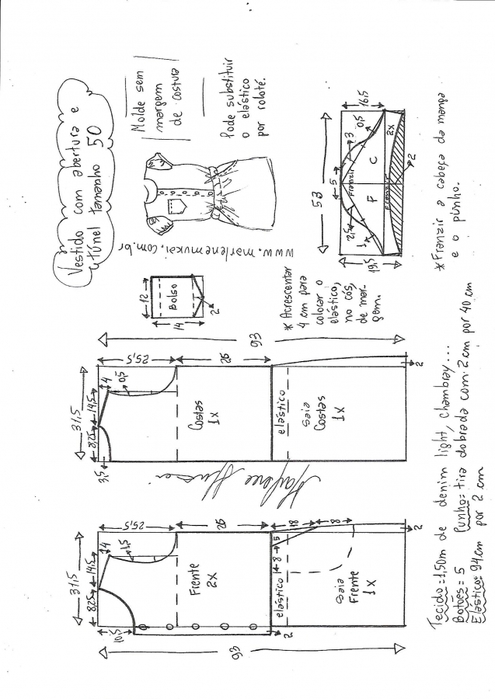 Vestido com abertura e
túnel tamanho 50
Molde sem
margem
de costura
Pode substituir
o elástico
por roloté.
www.marlenemukai.com.br
12
Bolso
14
2
* Acrescentar
4 cm para
colocar o
elástico,
no cós,
de mar-
gem.
52
5
3
0,5
16,5
Franzir
2,5
1
F
C
19,5
2X
2
* Franzir a cabeça da manga
e o punho.
93
31,5
8,25
14,5
4
0,5
3,5
25,5
26
Costas
1X
elástico
saia
Costas
1X
2
31,5
8,25
14,5
4
1,5
10,5
25,5
26
Frente
2X
elástico
8
5
18
8
saia
Frente
1X
2
2
93
Tecido = 1,50m de denim light, chambray...
Botões = 5 Punho = tira dobrada com 2 cm por 40 cm
Elástico = 94 cm por 2 cm